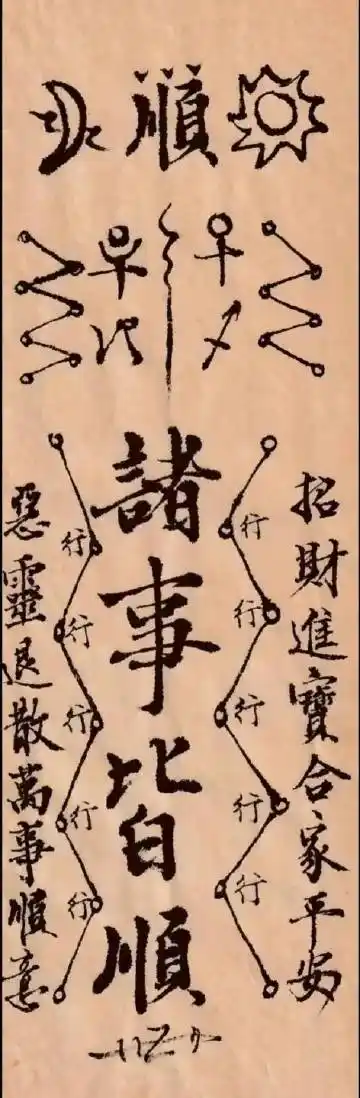 順
招財進寶合家平安
行行行行行
諸事皆順
行行行行行
惡靈退散萬事順意